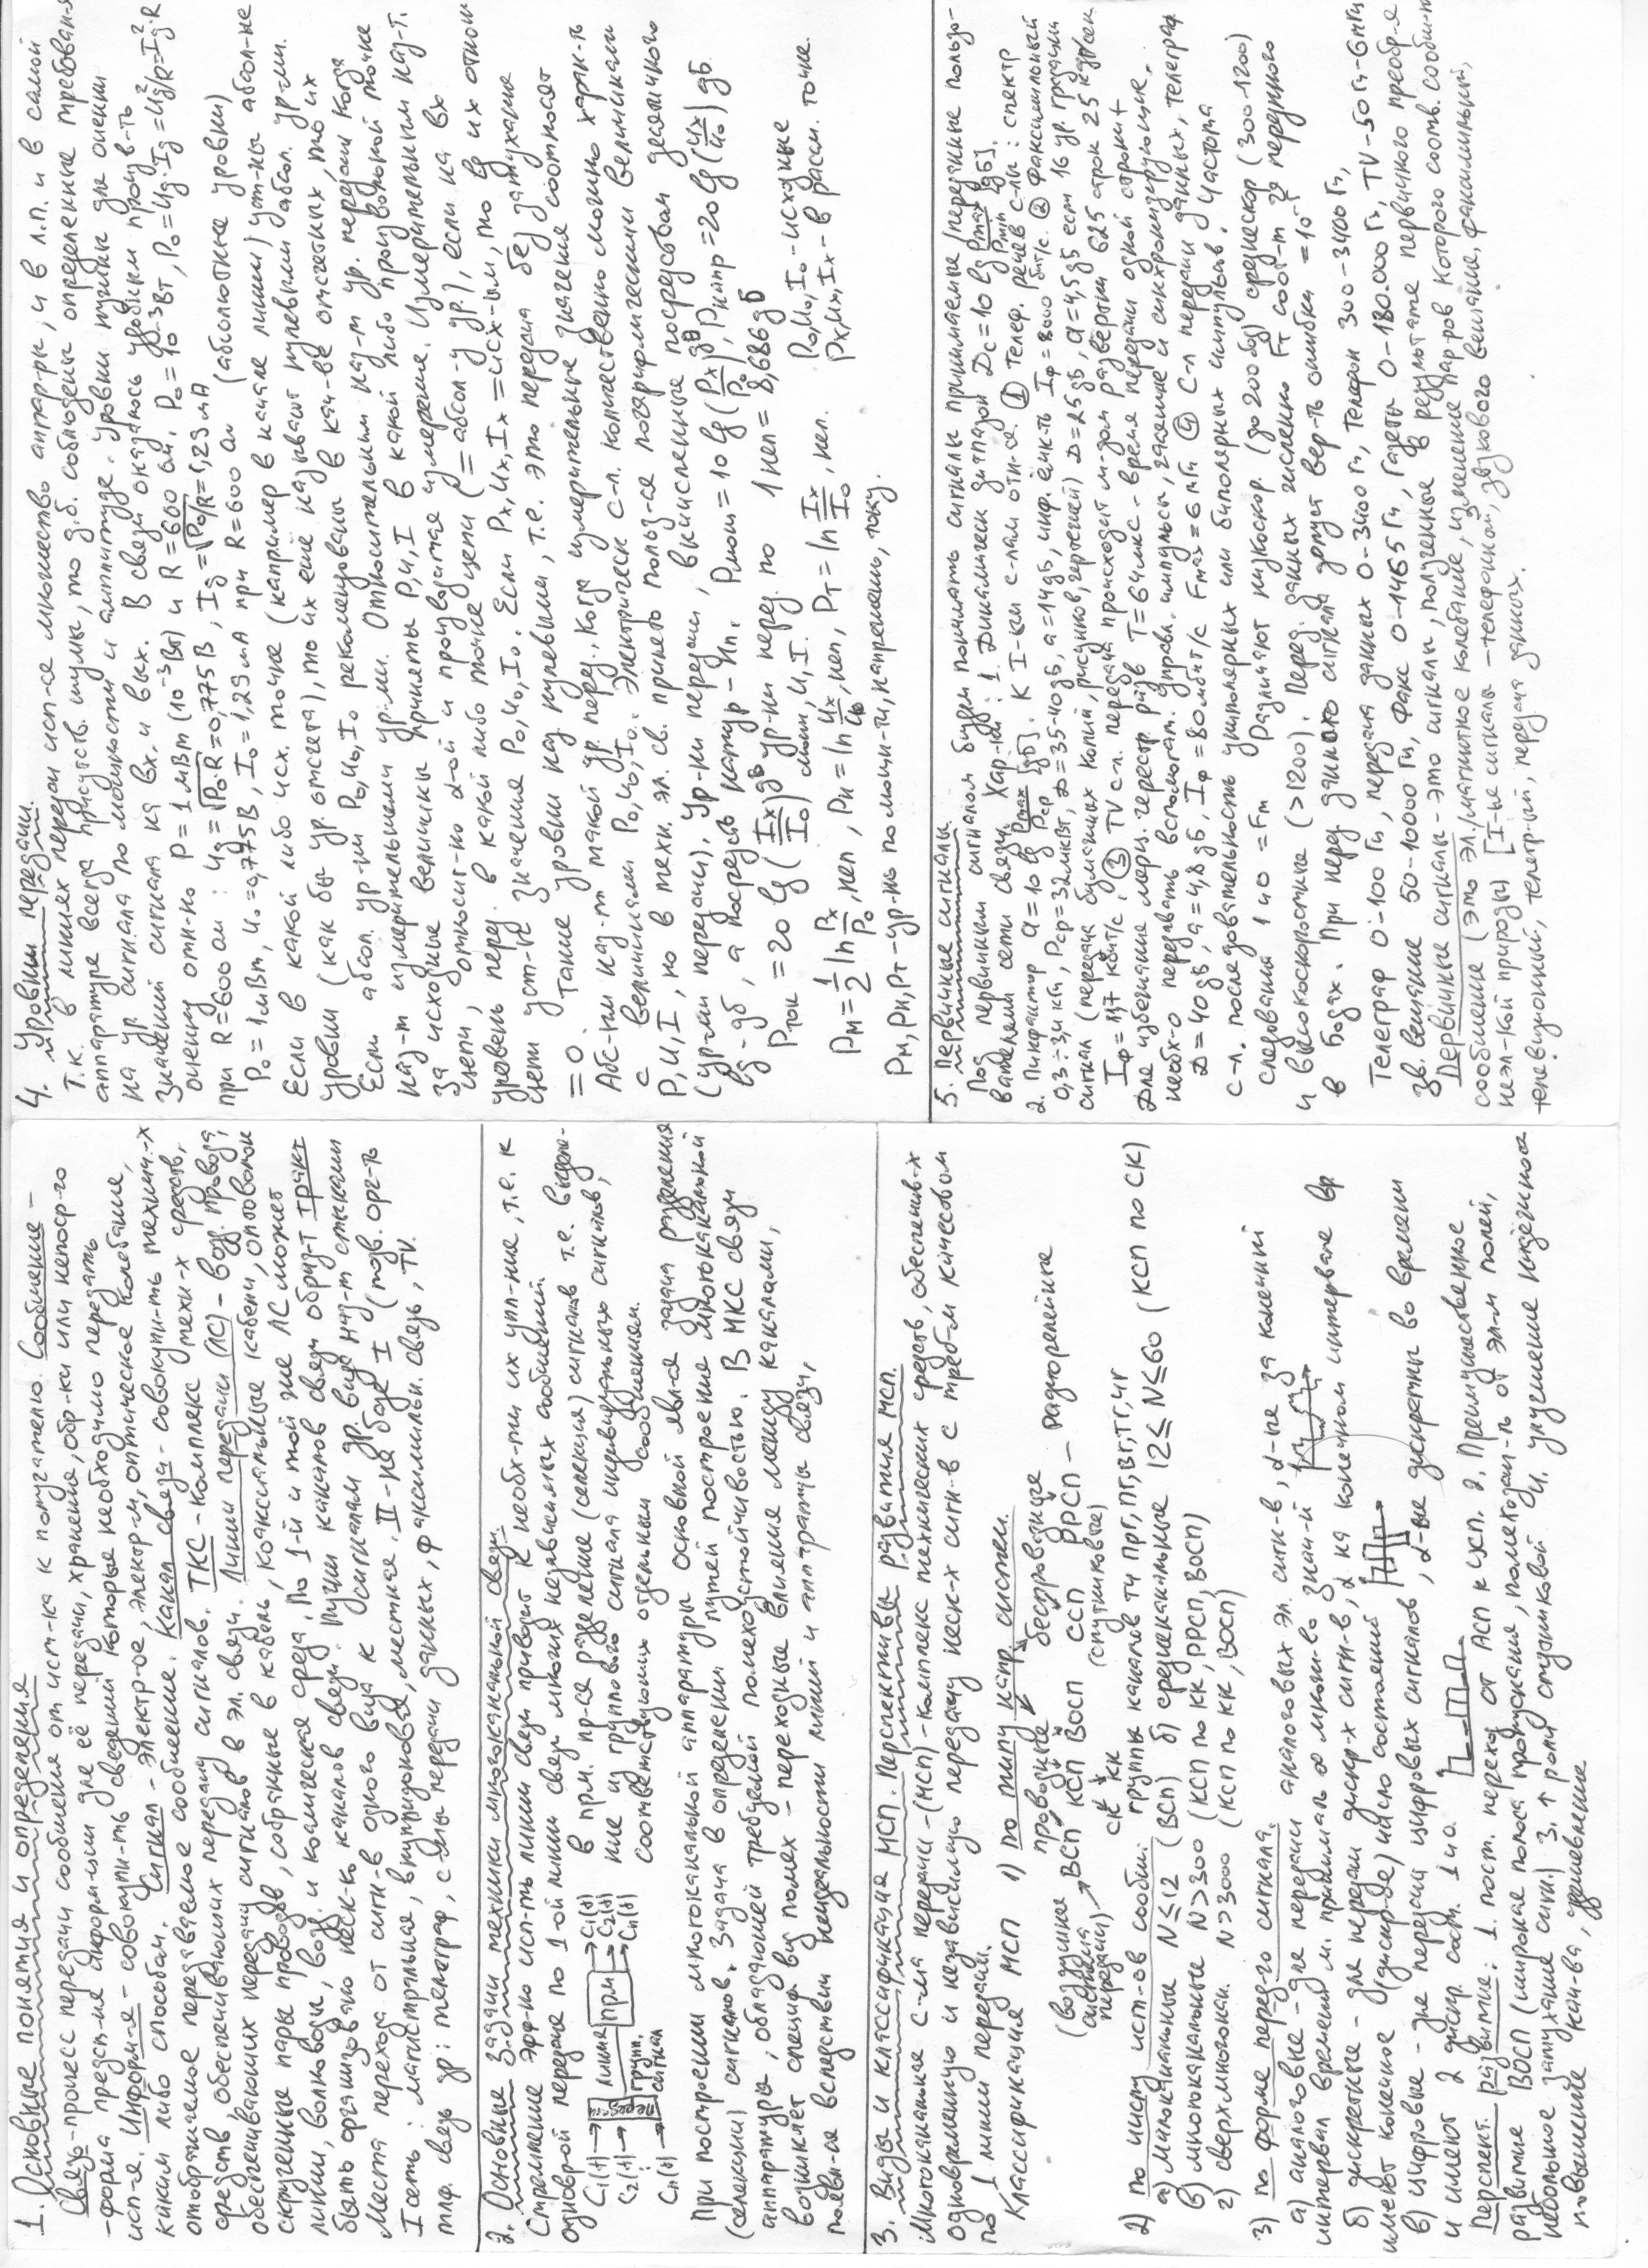 1. Основные понятия и определения
Связь - процесс передачи сообщения от ист-ка к получателю. Сообщение -
- форма предст-ия информ-ии для её передачи, хранения, обр-ки или непоср-го
исп-я. Информ-я - совокупн-ть сведений которые необходимо передать
каким либо способам. Сигнал - электр-ое, электр-м, оптическое колебание,
отображаемое передаваемое сообщение. Канал связи - совокупн-ть технич-х
средств, обеспечивающих передачу сигналов. ТКС - комплекс техн-х средств,
обеспечивающих передачу сигналов в эл. связи. Линии передачи (ЛС) - возд. провода,
скрученные пары проводов, собранные в кабель, коаксиальные кабели, оптоволокон
линии, волноводы, возд. и космическая среда. По 1-й и той же ЛС может
быть организовано неск-ко каналов связи. Пучки каналов связи образ-т тракт
Места перехода от сигн-в одного вида к сигналам др. вида наз-т стыками
I сеть: магистральная, внутризоновая, местная. II - на базе I (тлф. орг-ть
тлф. связь др: телеграф, с-мы передачи данных, факсимильн. связь, TV.
2. Основные задачи техники многоканальной связи.
Стремление эфф-но исп-ть линии связи приводит к необх-ти их упл-ние, т.е. к
одноврой передаче по 1-ой линии связи многих независимых сообщений.
C₁(t) → передач линия ПРМ → C₁(t)
C₂(t) → → C₂(t)
Cn(t) → групп. сигнал → Cn(t)
в прм. пр-ся разделение (селекция) сигналов т.е. выделе-
ние из группового сигнала индивидуальных сигналов,
соответствующих отдельным сообщениям.
При построении многоканальной аппаратуры основной явл-ся задача разделения
(селекции) сигналов. Задача в определении путей построение многоканальной
аппаратуры, обладающей требуемой помехоустойчивостью. В МКС связи
возникает специф вид помех - переходные влияние между каналами,
появл-ся вследствии неидеальности линий и аппаратуры связи,
3. Виды и классификация МСП. Перспективы развития МСП.
Многоканальные с-ма передачи - (МСП) - комплекс технических средств, обеспечив-х
одновременную и независимую передачу неск-х сигн-в с требуем качеством
по 1 линии передачи.
Классификация МСП 1) по типу напр. систем.
проводные беспроводные
(воздушная система передачи) → ВСП КСП ВОСП ССП РРСП - радиорелейные
СК КК (спутниковые)
2) по числу ист-ов сообщ.: группы каналов ТЧ ПРГ, ПГ, ВГ, ТГ, ЧГ
а) малоканальные N ≤ 12 (ВСП) б) среднеканальные 12 ≤ N ≤ 60 (КСП по СК)
в) многоканальные N > 300 (КСП по КК, РРСП, ВОСП)
г) сверхмногокан. N > 3000 (КСП по КК, ВОСП)
3) по форме перед-го сигнала.
а) аналоговые - для передачи аналоговых эл. сигн-в, д-ые за конечный
интервал времени м. принимать ∞ множ-во знач-й
б) дискретные - для передачи дискр-х сигн-в, д на конечном интервале вр
имеют конечное (дискр-ое) число состояний
в) цифровые - для передачи цифровых сигналов, д-ые дискретны во времени
и имеют 2 дискр. сост. 1 и 0.
Перспект. развитие: 1. пост. переход от АСП к ЦСП. 2. Преимущественное
развитие ВОСП (широкая полоса пропускания, помехозащ-ть от эл-м полей,
небольшое затухание сигн.) 3. ↑ роли спутниковой 4. улучшение
повышение кач-ва, удешевление
4. Уровни передачи.
Т.к. в линиях передачи исп-ся множество аппар-ры, и в л.п. и в самой
аппаратуре всегда присутств. шумы, то д.б. соблюдены определенные требования
на ур. сигнала по мощности и амплитуде. Уровни нужные для оценки
значений сигнала на вх. и вых. В связи оказалось удобным произв-ть
оценку отн-но P = 1 мВт (10⁻³ Вт) и R = 600 ом. P₀ = 10⁻³ Вт, P₀ = Uд·Iд = Uд²/R = Iд²·R
при R = 600 ом: Uд = √P₀·R = 0,775 В, Iд = √P₀/R = 1,29 мА
P₀ = 1 мВт, U₀ = 0,775 В, I₀ = 1,29 мА при R = 600 ом (абсолютные уровни)
Если в какой либо исх. точке (например в начале линии) уст-ны абсол-не
уровни (как бы ур. отсчета), то их ещё называют нулевыми абсол. ур-ми.
Если абсол. ур-ни P₀, U₀, I₀ рекомендованы в кач-ве отсчетных, то их
наз-т измерительными ур-ми. Относительным наз-т ур. передачи когда
за исходные величины приняты P, U, I в какой либо произвольной точке
цепи, относит-но д-ой и производятся измерение. Измерительным наз-т.
уровень перед. в какой либо точке цепи (= абсол-у ур.), если на вх
цепи уст-ть значения P₀, U₀, I₀. Если Pх, Uх, Iх = исх-ым, то lg их отнош
= 0. Такие уровни наз нулевыми, т.е. это передача без затухание
Абс-ым наз-т такой ур. перед., когда измерительные значения соотносят
с величинами P₀, U₀, I₀. Электрическ с-л. количественно можно харак-ть
P, U, I, но в техн. эл. св. принято польз-ся логарифмическими величинами
(ур-ми передачи). Ур-ни передачи, вычисленные посредством десятичного
lg - дБ, а посредств натур - Нп. Pмощ = 10 lg (Pх/P₀) дБ, Pнапр = 20 lg (Uх/U₀) дБ.
Pток = 20 lg (Iх/I₀) дБ ур-ни перед. по мощн, U, I. 1 неп = 8,686 дБ
Pм = 1/2 ln Pх/P₀, неп, Pн = ln Uх/U₀, неп, Pт = ln Iх/I₀, неп. P₀, U₀, I₀ - исходные
Pм, Pн, Pт - ур-нь по мощн-ти, напряжению, току. Pх, Uх, Iх - в рассм. точке.
5. Первичные сигналы.
Под первичным сигналом будем понимать сигналы принимаемые/передачные пользо-
вателями сети связи. Хар-ки: 1. Динамическ диапазон Dс = 10 lg Pmax/Pmin [дБ],
2. Пикфактор a = 10 lg Pmax/Pср [дБ]. К I-ным с-лам отн-ся: ① телеф. речев с-лы: спектр
0,3 ÷ 3,4 кГц, Pср = 32 мкВт, D = 35-40 дБ, a = 14 дБ, инф. ёмк-ть Iф = 8000 бит/с. ② Факсимильный
сигнал (передача бумажных копий, рисунков, чертежей) D = 25 дБ, a = 4,5 дБ если 16 ур. градаци
Iф = 11,7 кбит/с. ③ TV сл. передача происходит м-дом развёртки 625 строк 25 кадр/сек
Для избегание мерц. черестр. разв T = 64 мкс - время передачи одной строки +
необх-о передавать вспомогат. управл. импульсы, гасящие и синхронизирующие.
D = 40 дБ, a = 4,8 дБ, Iф = 80 мбит/с Fmax = 6 мГц ④ С-л передачи данных, телеграф
с-л. последовательность униполярных или биполярных импульсов. Частота
следования 1 и 0 = Fт Различают низкоскор. (до 200 бод) среднескор (300-1200)
и высокоскоростные (>1200). Перед. данных численно Fт соот-т за передачного
в Бодах. При перед данного сигнала вер-ть ошибки = 10⁻⁵
Телеграф 0-100 Гц, передача данных 0-3400 Гц, Телефон 300-3400 Гц,
Зв. вещание 50-10000 Гц, Факс 0-1465 Гц, Газеты 0-180.000 Гц, TV - 50 Гц-6 мГц
Первичные сигналы - это сигналы, полученные в результате первичного преобр-я
сообщение (это эл./магнитное колебание, изменение пар-ров которого соотв. сообщ-ю
неэл-кой природы) [I-ые сигналы - телефоной, звукового вещание, факсимильный,
телевизионный, телегр-ый, передача данных.